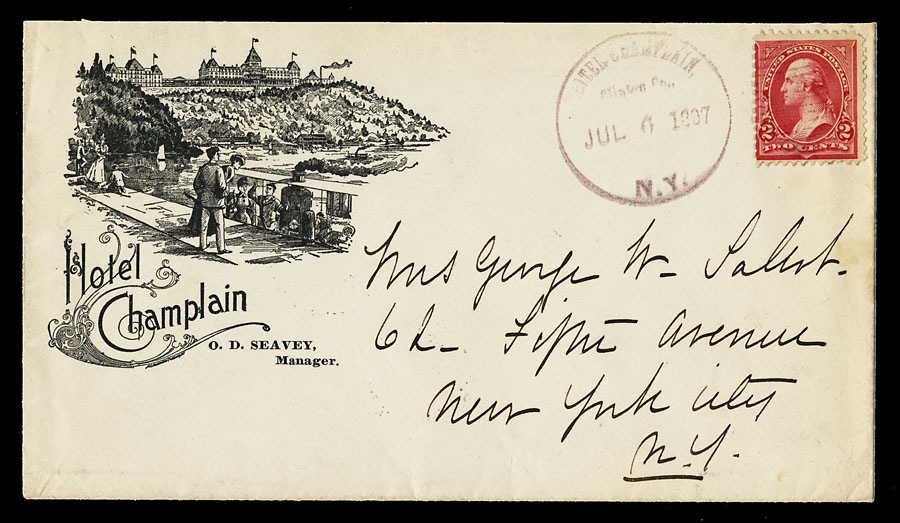 Hotel
Champlain
O. D. SEAVEY,
Manager.
HOTEL CHAMPLAIN,
Clinton Co.,
JUL 6 1897
N.Y.
UNITED STATES POSTAGE
2 2
TWO CENTS
Mrs George W-
62- Fifth Avenue
New York City
N.Y.